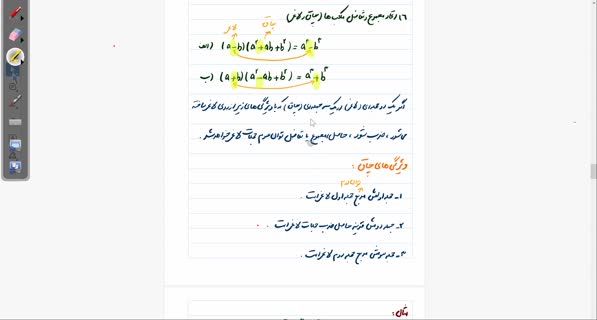 ۱۶) اتحاد مجموع و تفاضل مکعب‌ها (چاق و لاغر)
لاغر چاق
الف) (a-b)(a²+ab+b²)=a³-b³
ب) (a+b)(a²-ab+b²)=a³+b³
اگر یک دو جمله‌ای (لاغر) در یک سه جمله‌ای (چاق) که با ویژگی‌های زیر از روی لاغر ساخته
می‌شود، ضرب شود، حاصل مجموع یا تفاضل توان سوم جملات لاغر خواهد شد.
ویژگی‌های چاق:
توان دوم
۱- جمله اولش مربع جمله اول لاغر است.
۲- جمله دومش قرینه حاصل ضرب جملات لاغر است.
۳- جمله سومش مربع جمله دوم لاغر است.
مثال: